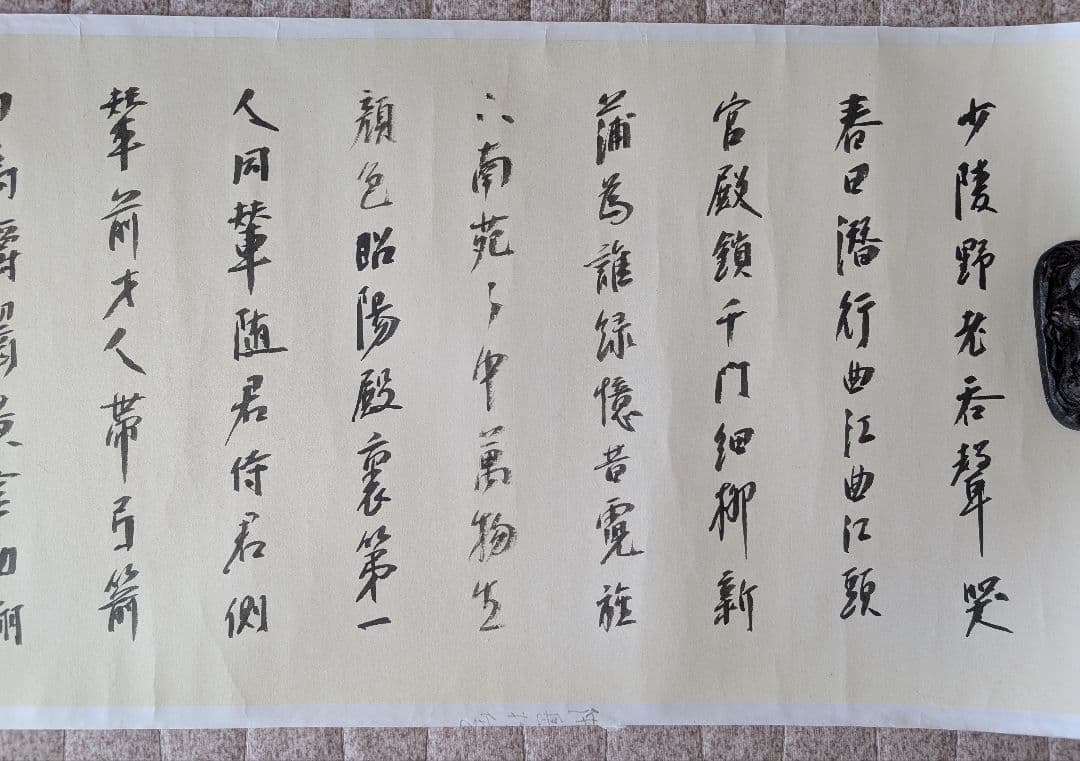 少陵野老吞聲哭
春日潛行曲江曲江頭
宮殿鎖千門細柳新
蒲為誰綠憶昔霓旌
下南苑々中萬物生
顏色昭陽殿裏第一
人同輦随君侍君側
輦前才人帶弓箭